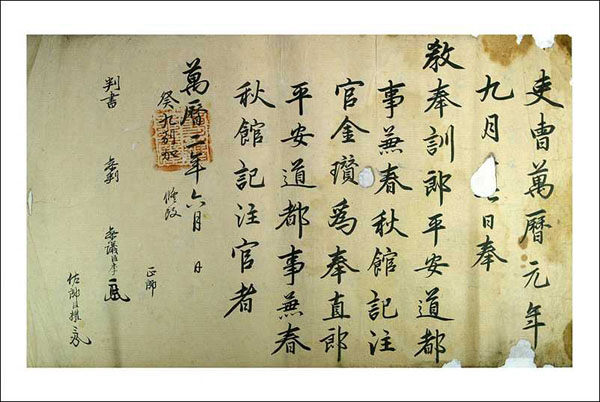 吏曹萬曆元年
九月 日奉
敎奉訓郎平安道都
事兼春秋館記注
官金瓚爲奉直郎
平安道都事兼春
秋館記注官者
萬曆二年六月 日
癸九別加
正郎
判書 參判 參議臣李
佐郎臣權